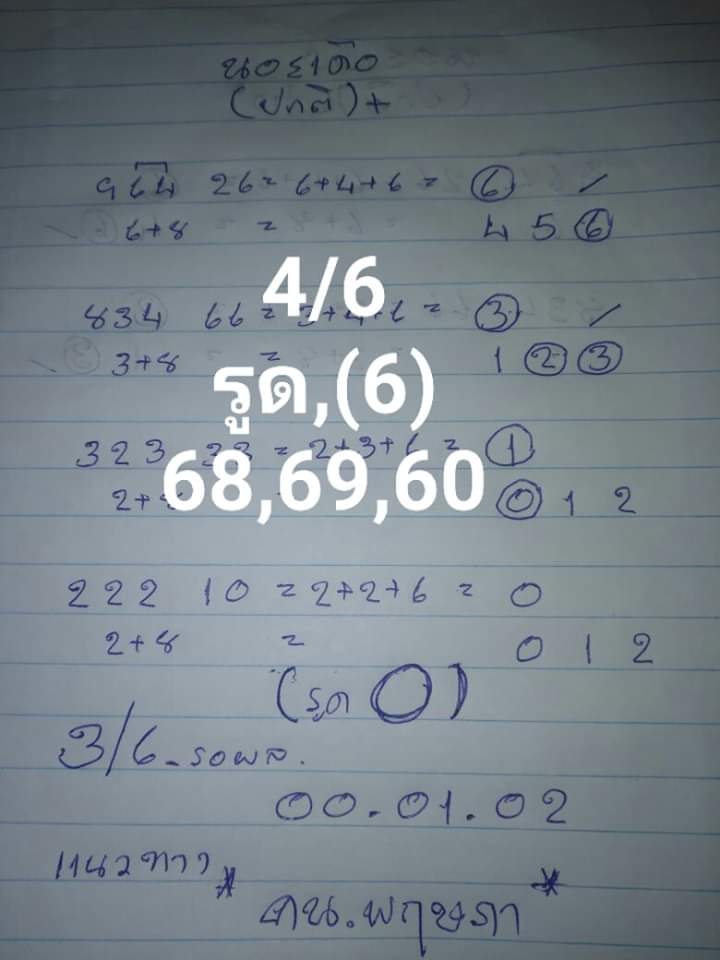 (ปกติ)+
964 26 = 6+4+6 = 6 ✓
6+8 = 4 5 6
4/6
834 66 = 3+4+6 = 3 ✓
3+8 = 1 2 3
รูด,(6)
323 33 = 2+3+6 = 1
68,69,60
2+8 0 1 2
222 10 = 2+2+6 = 0
2+8 = 0 1 2
(รูด 0)
3/6 - รอผล.
00.01.02
แนวทาง
* คน.พฤษภา *